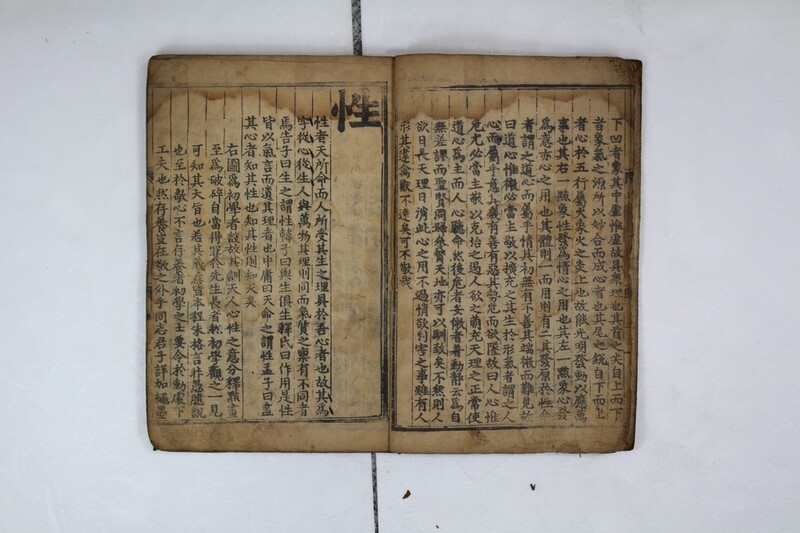 下凹者象其中虛惟虛故具衆理也其首之尖自上而下
者象氣之源所以妙合而成心者也其尾之銳自下而上
者心於五行屬火象火之炎上也故能光明發動以應萬
事也其右一點象性發爲情心之用也其左一點象心發
爲意亦心之用也其體則一而用則有二其發原於性命
者謂之道心而屬乎情其初無有不善其端微而難見故
曰道心惟微必當主敬以擴充之其生於形氣者謂之人
心而屬乎意其幾有善有惡其勢危而欲墜故曰人心惟
危尤必當主敬以克治之遏人欲之萌充天理之正常使
道心爲主而人心聽命然後危者安微者著動靜云爲自
無差謬而聖賢同歸參贊天地亦可以馴致矣不然則人
欲日長天理日消此心之用不過情欲利害之事雖有人
形其違禽獸不遠矣可不敬哉
性
性者天所命而人所受其生之理具於吾心者也故其爲
字從心從生人與萬物其理則同而氣質之稟有不同者
焉告子曰生之謂性韓子曰與生俱生釋氏曰作用是性
皆以氣言而遺其理者也中庸曰天命之謂性孟子曰盡
其心者知其性也知其性則知天矣
右圖爲初學者設故其訓天人心性之意分釋點畫
至爲破碎自當得罪於先生長者然初學觀之一見
可知其大旨也若其本程朱格言非愚臆說
也至於敬心不言存養者初學之士要令於動處下
工夫也然存養豈在敬之外乎同志君子詳加繩墨